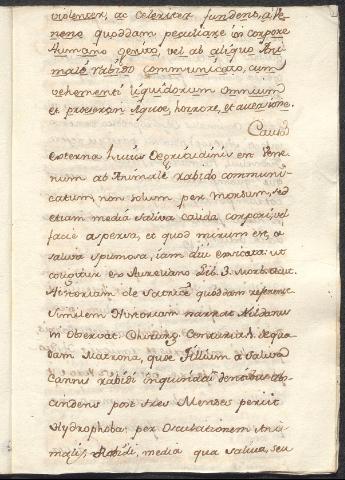 violenter, ac celeriter fundens, a Ve-
neno quodam peculiare in corpore
humano genito, vel ab aliquo Ani-
male rabido communicato, cum
vehementi liquidorum omnium
et præsertim aquæ, horrore, et aversione.
Causa
externa huius ægritudinis est Vene-
num ab Animale rabido communi-
catum, non solum per morsum, sed
etiam media saliva calida corpori, vel
facie aspersa, et quod mirum est, a
saliva spumosa, iam diu exsicata: ut
ex Aureliano Lib. 3. Morb. acut.
Historiam de quodam referente
similem Historiam narrat Hildanus
in Observat. Chirurg. Centuria 1. de qua-
dam Matrona, quæ Pallium a saliva
Cannis rabidi inquinatam dentibus abs-
cindens post tres Menses periit
Hydrophoba; per Osculationem Ani-
malis Rabidi, media qua saliva, seu